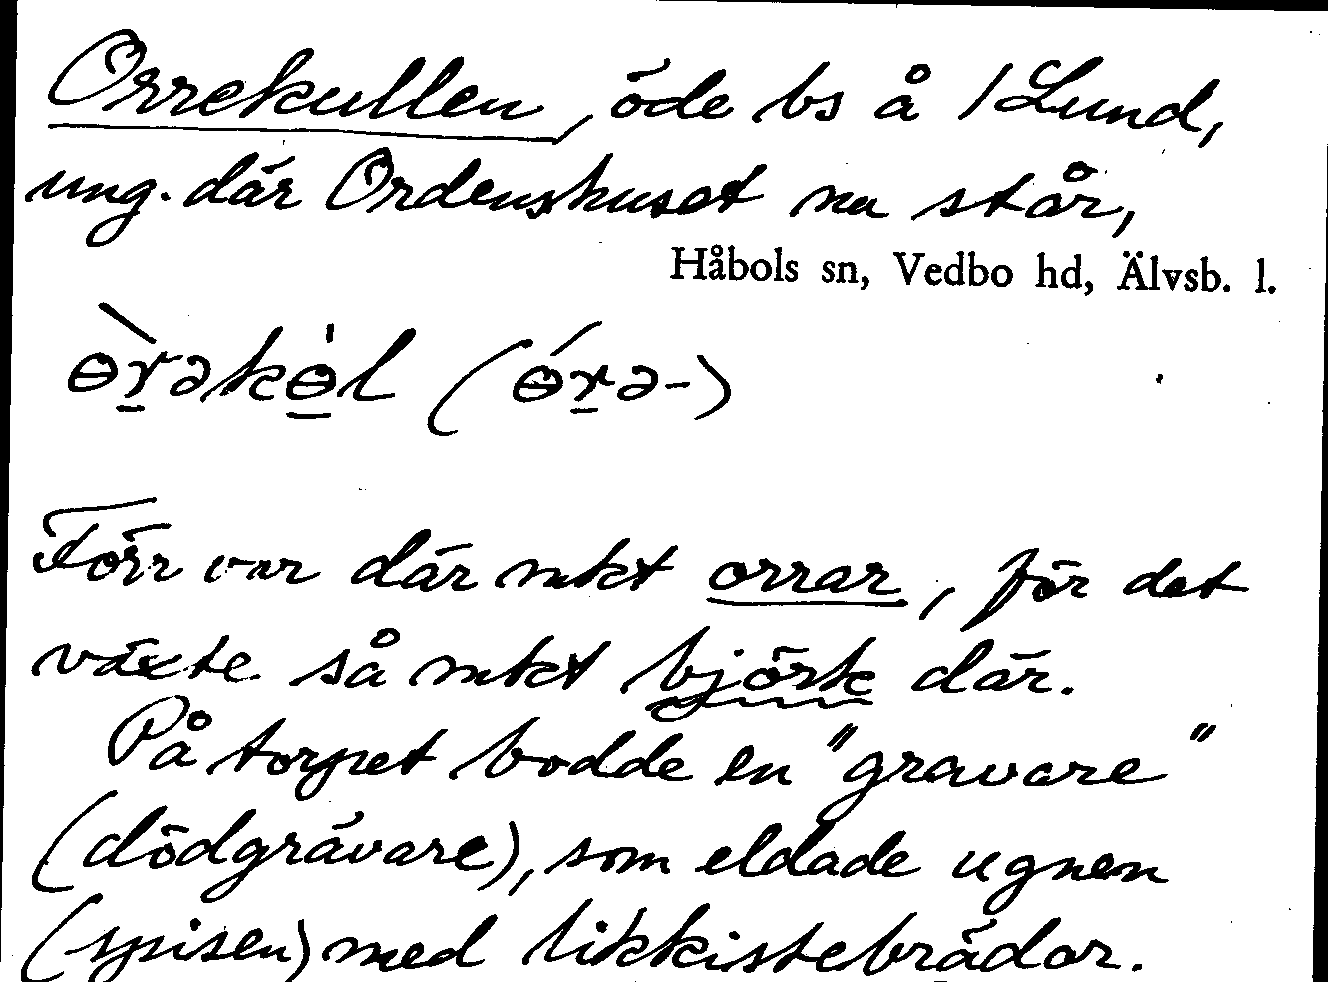 Orrekullen, öde bs å 1 Lund,
ung. där Ordenshuset nu står,
Håbols sn, Vedbo hd, Älvsb. l.
ɵ̀r̠əkɵ̠̍l (ɵ́r̠ə-)
Förr var där mkt orrar, för det
växte så mkt björk där.
På torpet bodde en "gravare"
(dödgrävare), som eldade ugnen
(spisen) med likkistebrädor.